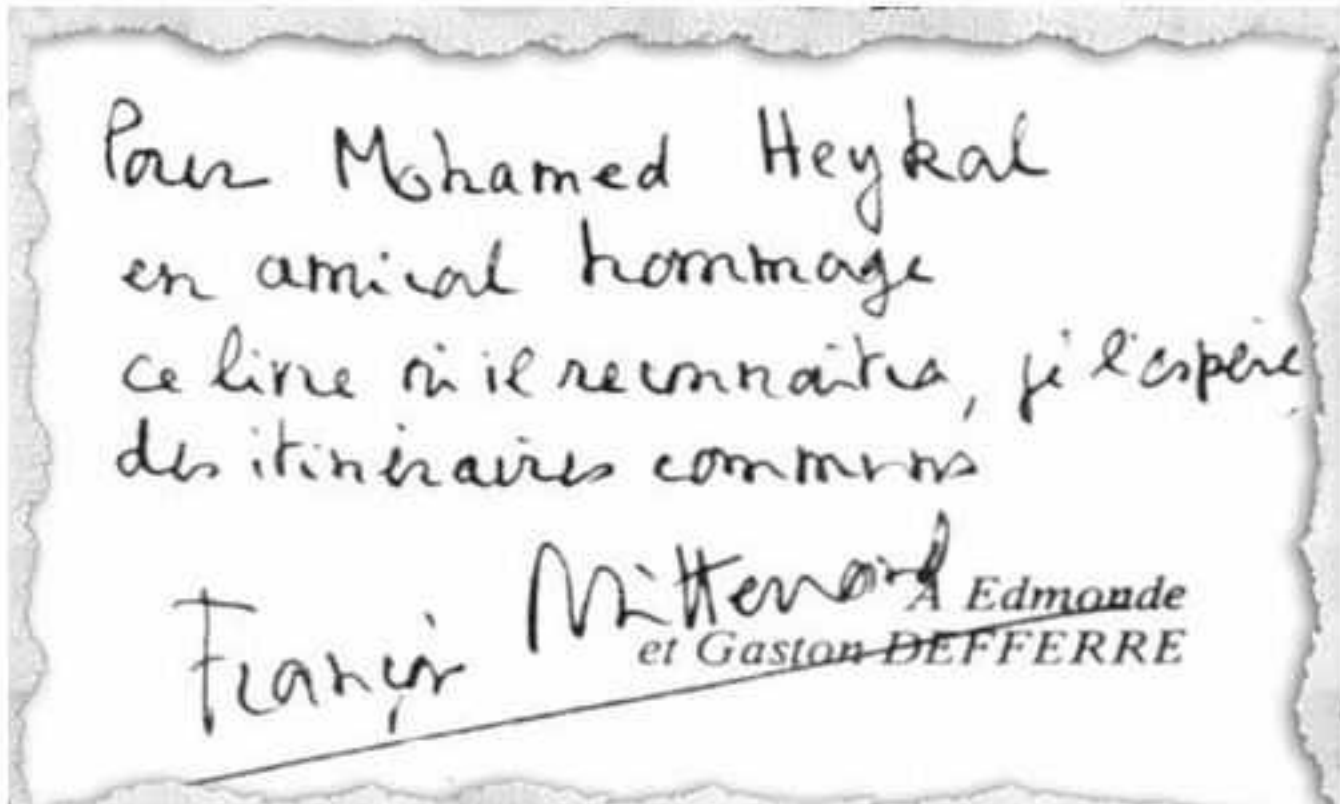 Pour Mohamed Heykal
en amical hommage
ce livre où il reconnaîtra, je l'espère
des itinéraires communs
François Mitterrand
A Edmonde
et Gaston DEFFERRE